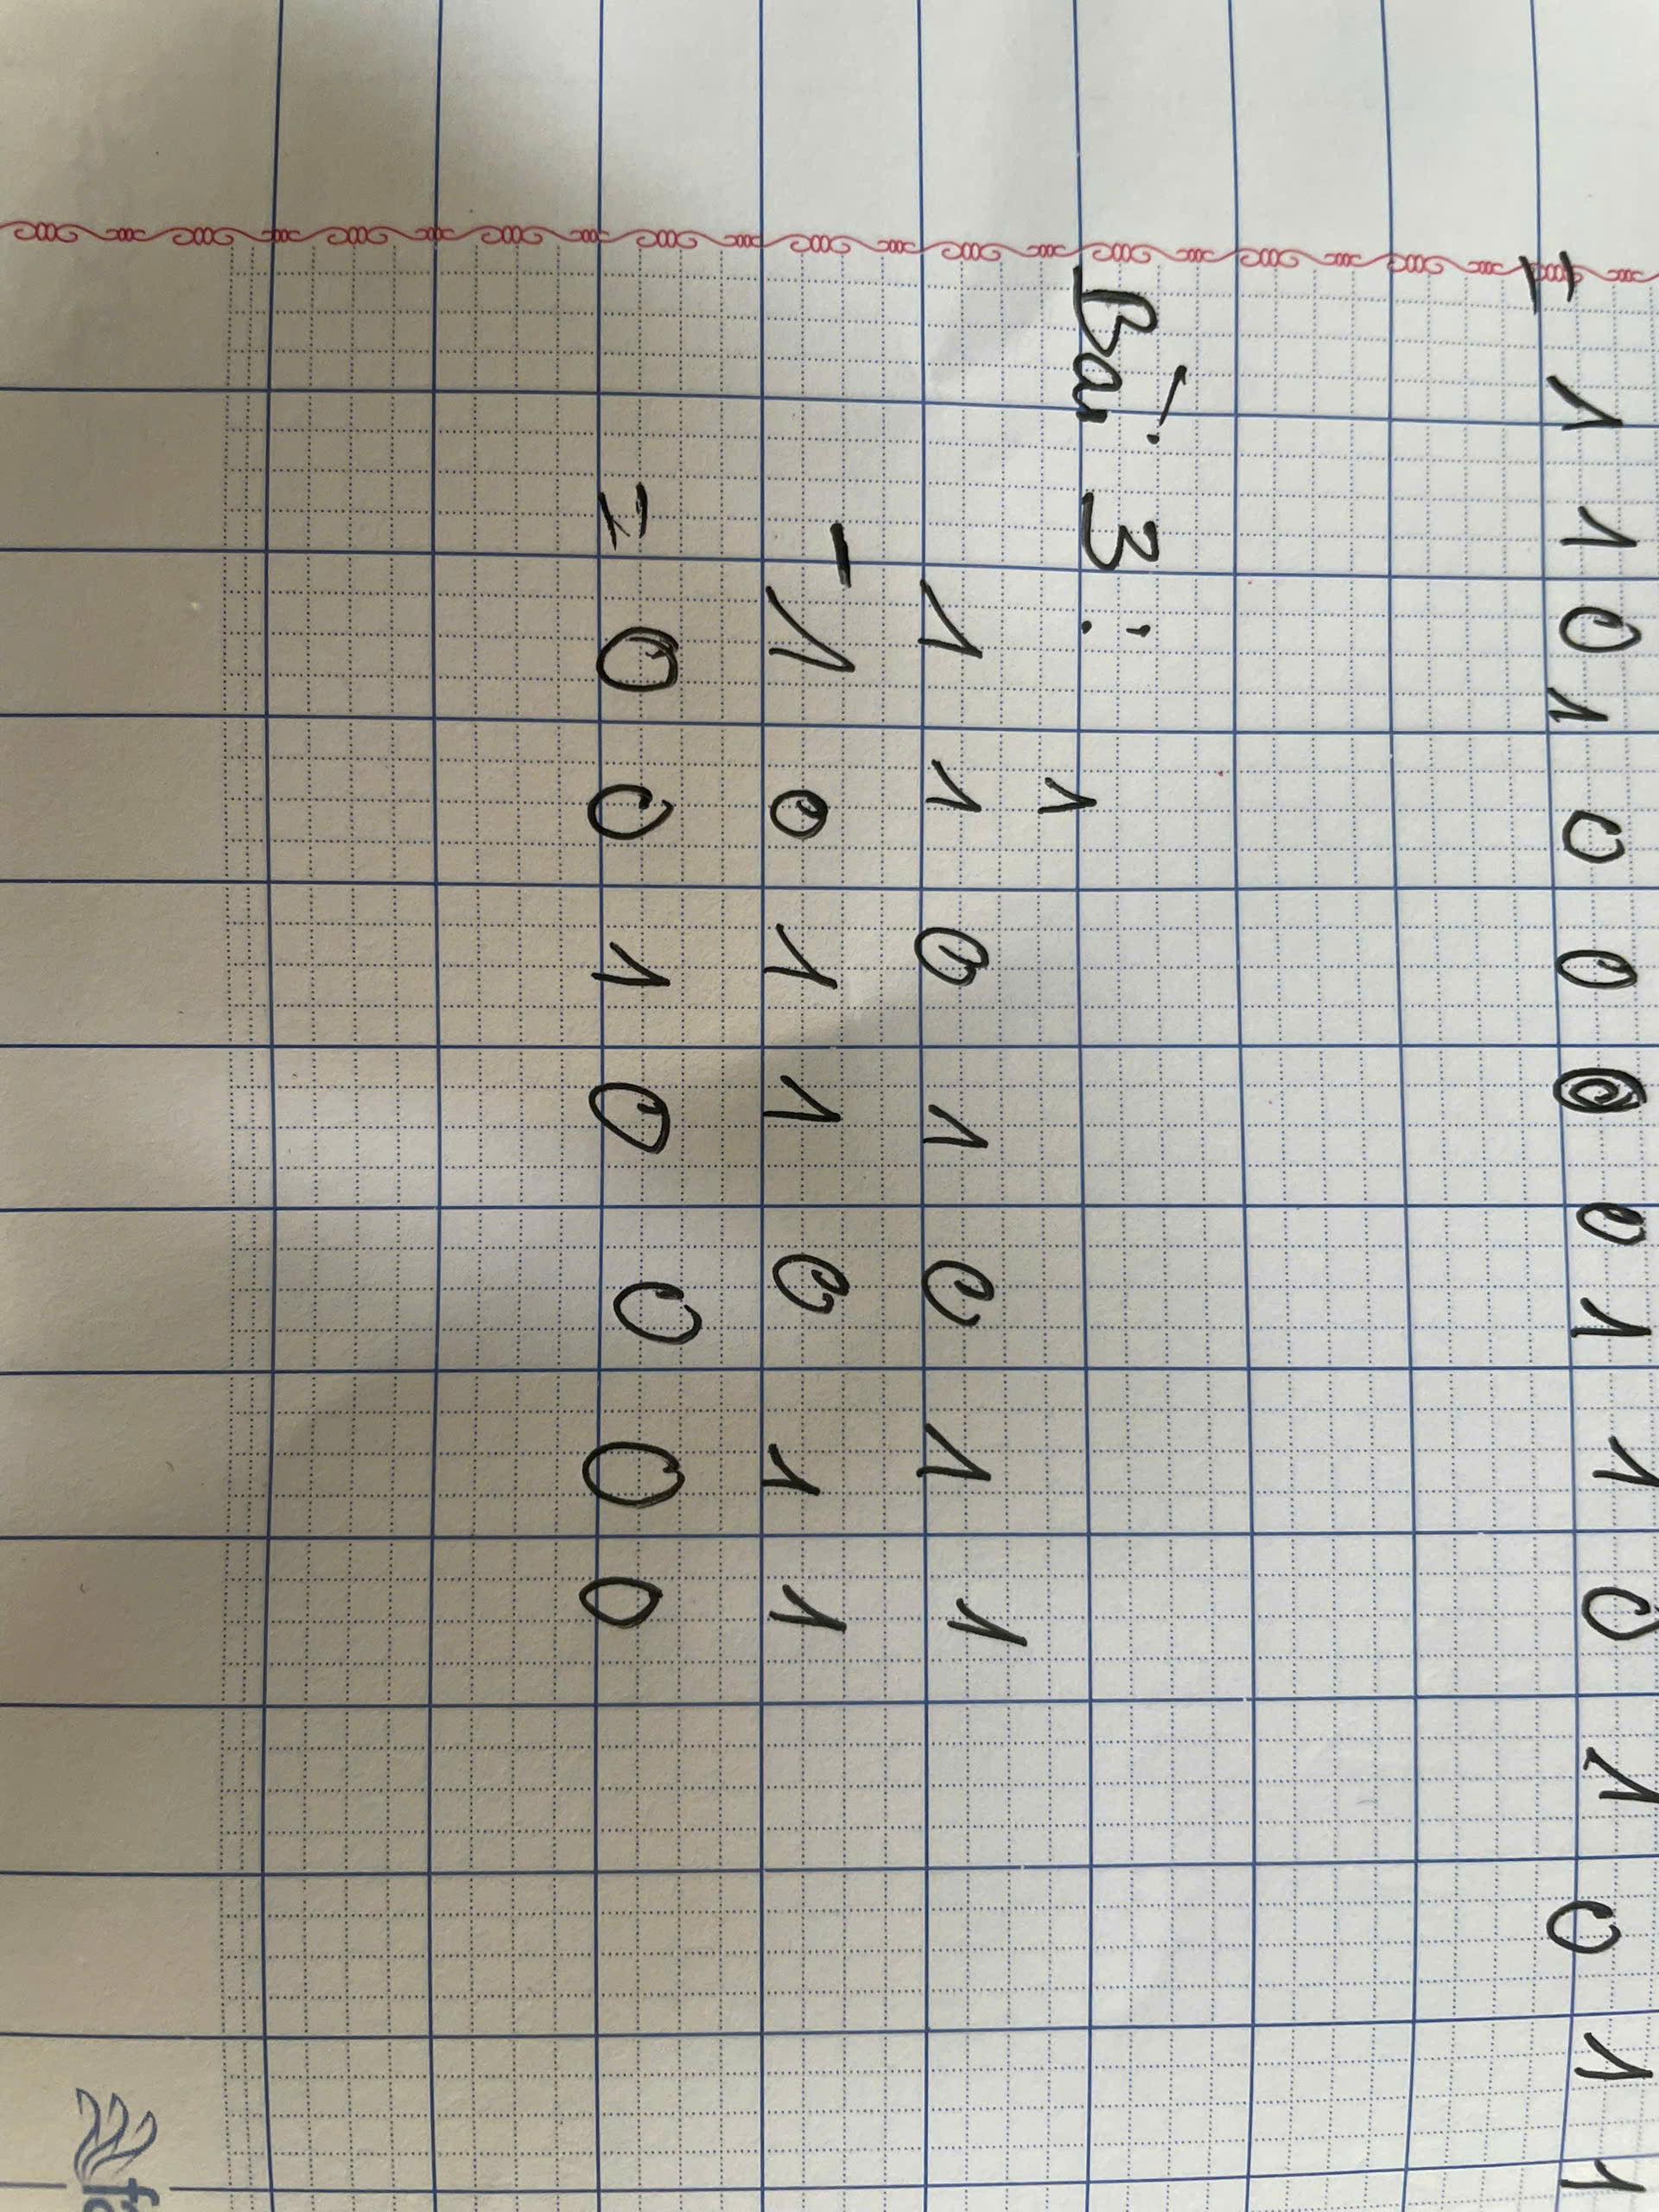 = 1 1 0 1 0 0 0 0 1 1 0 1 0 1 1
Bài 3 :
1
1 1 0 1 0 1 1
- 1 0 1 1 0 1 1
= 0 0 1 0 0 0 0